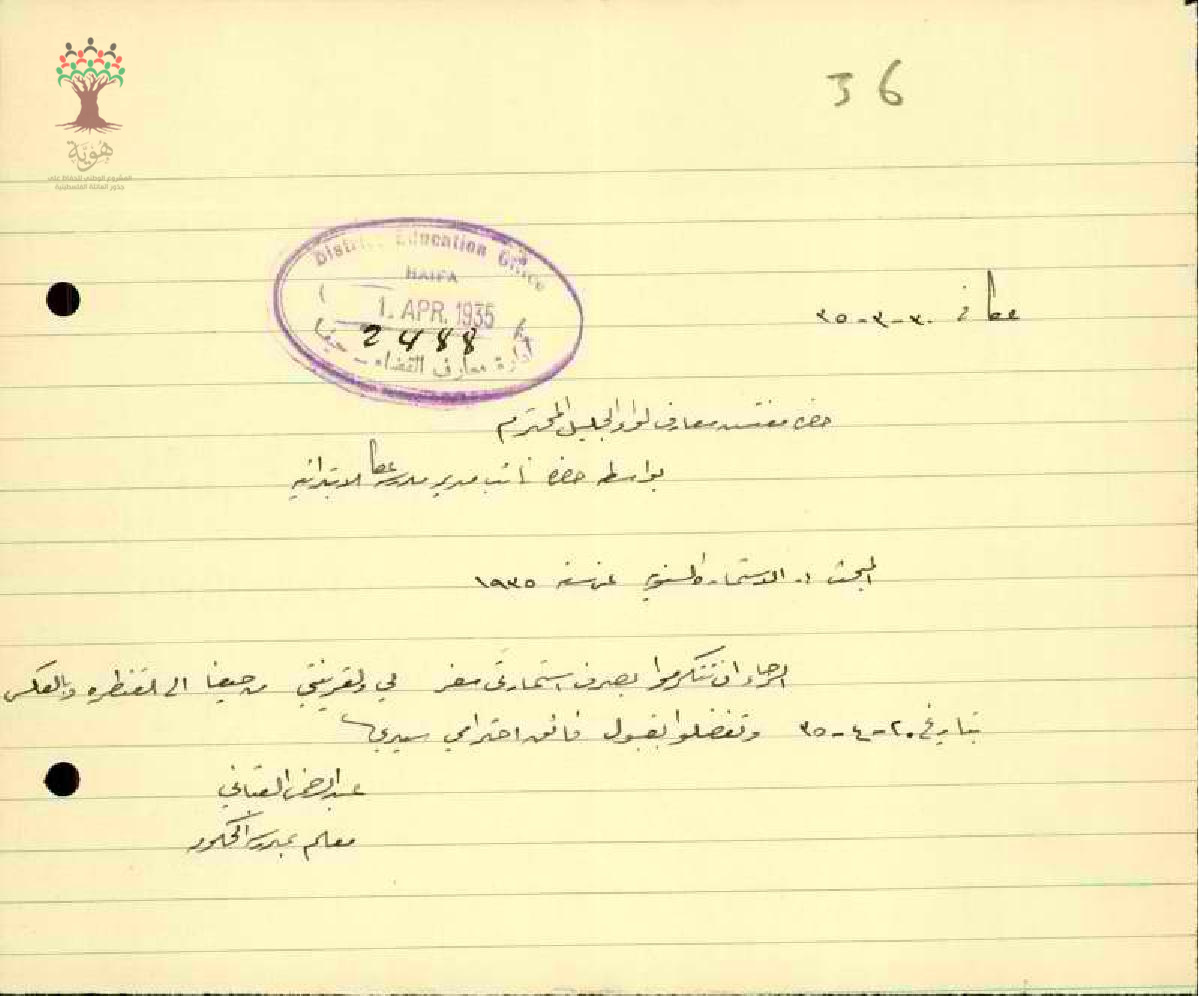 36
هوية
المشروع الوطني للحفاظ على
جذور العائلة الفلسطينية
District Education Office
HAIFA
1. APR. 1935
2488
ادارة معارف القضاء - حيفا
عكا في ٣٠-٣-٣٥
حضرة مفتش معارف لواء الجليل المحترم
بواسطة حضرة نائب مدير مدرسة عكا الابتدائية
المبحث :- الاستمارة السنوية عن سنة ١٩٣٥
الرجاء ان تتكرموا بصرف استمارتي سفر لي ولقرينتي من حيفا الى القنطره وبالعكس
بتاريخ ٢٠-٤-٣٥ وتفضلوا بقبول فائق احترامي سيدي
عبد الرحمن
معلم بمدرسة